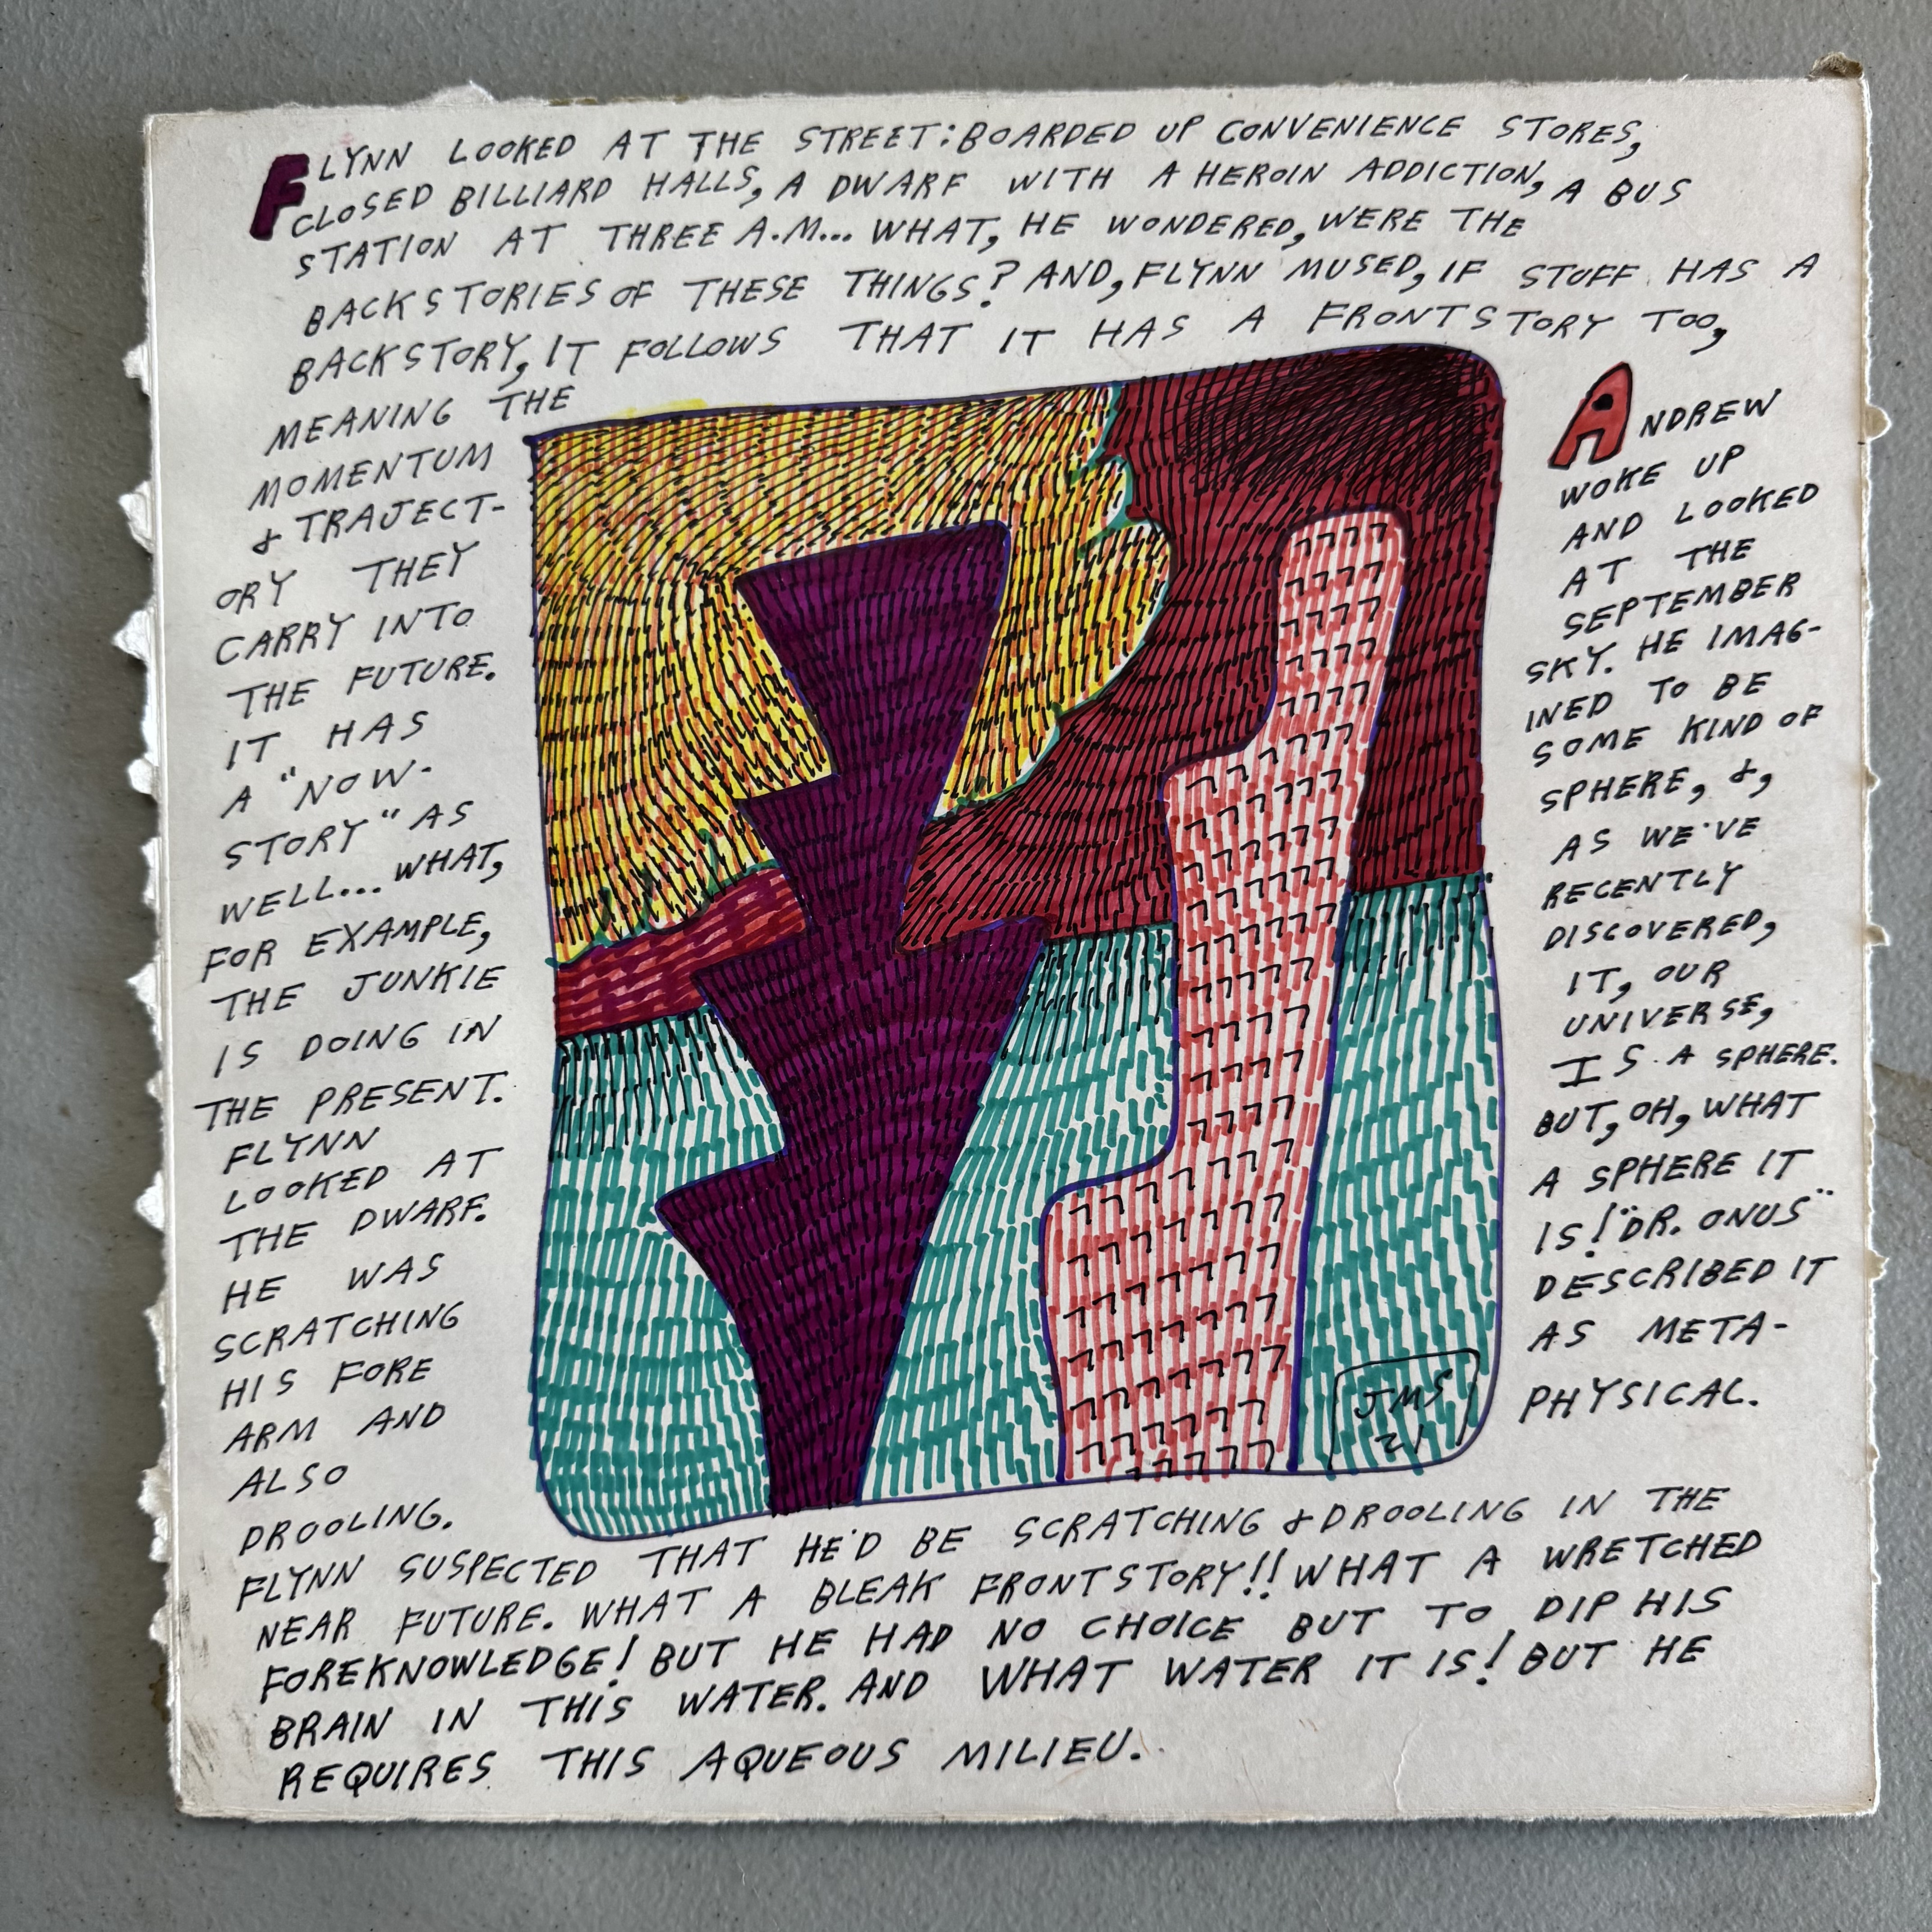 FLYNN LOOKED AT THE STREET: BOARDED UP CONVENIENCE STORES,
CLOSED BILLIARD HALLS, A DWARF WITH A HEROIN ADDICTION, A BUS
STATION AT THREE A.M... WHAT, HE WONDERED, WERE THE
BACKSTORIES OF THESE THINGS? AND, FLYNN MUSED, IF STUFF HAS A
BACKSTORY, IT FOLLOWS THAT IT HAS A FRONTSTORY TOO,
MEANING THE
MOMENTUM
& TRAJECT-
ORY THEY
CARRY INTO
THE FUTURE.
IT HAS
A "NOW-
STORY" AS
WELL... WHAT,
FOR EXAMPLE,
THE JUNKIE
IS DOING IN
THE PRESENT.
FLYNN
LOOKED AT
THE DWARF.
HE WAS
SCRATCHING
HIS FORE
ARM AND
ALSO
DROOLING.
FLYNN SUSPECTED THAT HE'D BE SCRATCHING & DROOLING IN THE
NEAR FUTURE. WHAT A BLEAK FRONTSTORY!! WHAT A WRETCHED
FOREKNOWLEDGE! BUT HE HAD NO CHOICE BUT TO DIP HIS
BRAIN IN THIS WATER. AND WHAT WATER IT IS! BUT HE
REQUIRES THIS AQUEOUS MILIEU.
ANDREW
WOKE UP
AND LOOKED
AT THE
SEPTEMBER
SKY. HE IMAG-
INED TO BE
SOME KIND OF
SPHERE, &,
AS WE'VE
RECENTLY
DISCOVERED,
IT, OUR
UNIVERSE,
IS A SPHERE.
BUT, OH, WHAT
A SPHERE IT
IS! "DR. ONUS"
DESCRIBED IT
AS META-
PHYSICAL.
JMS
21